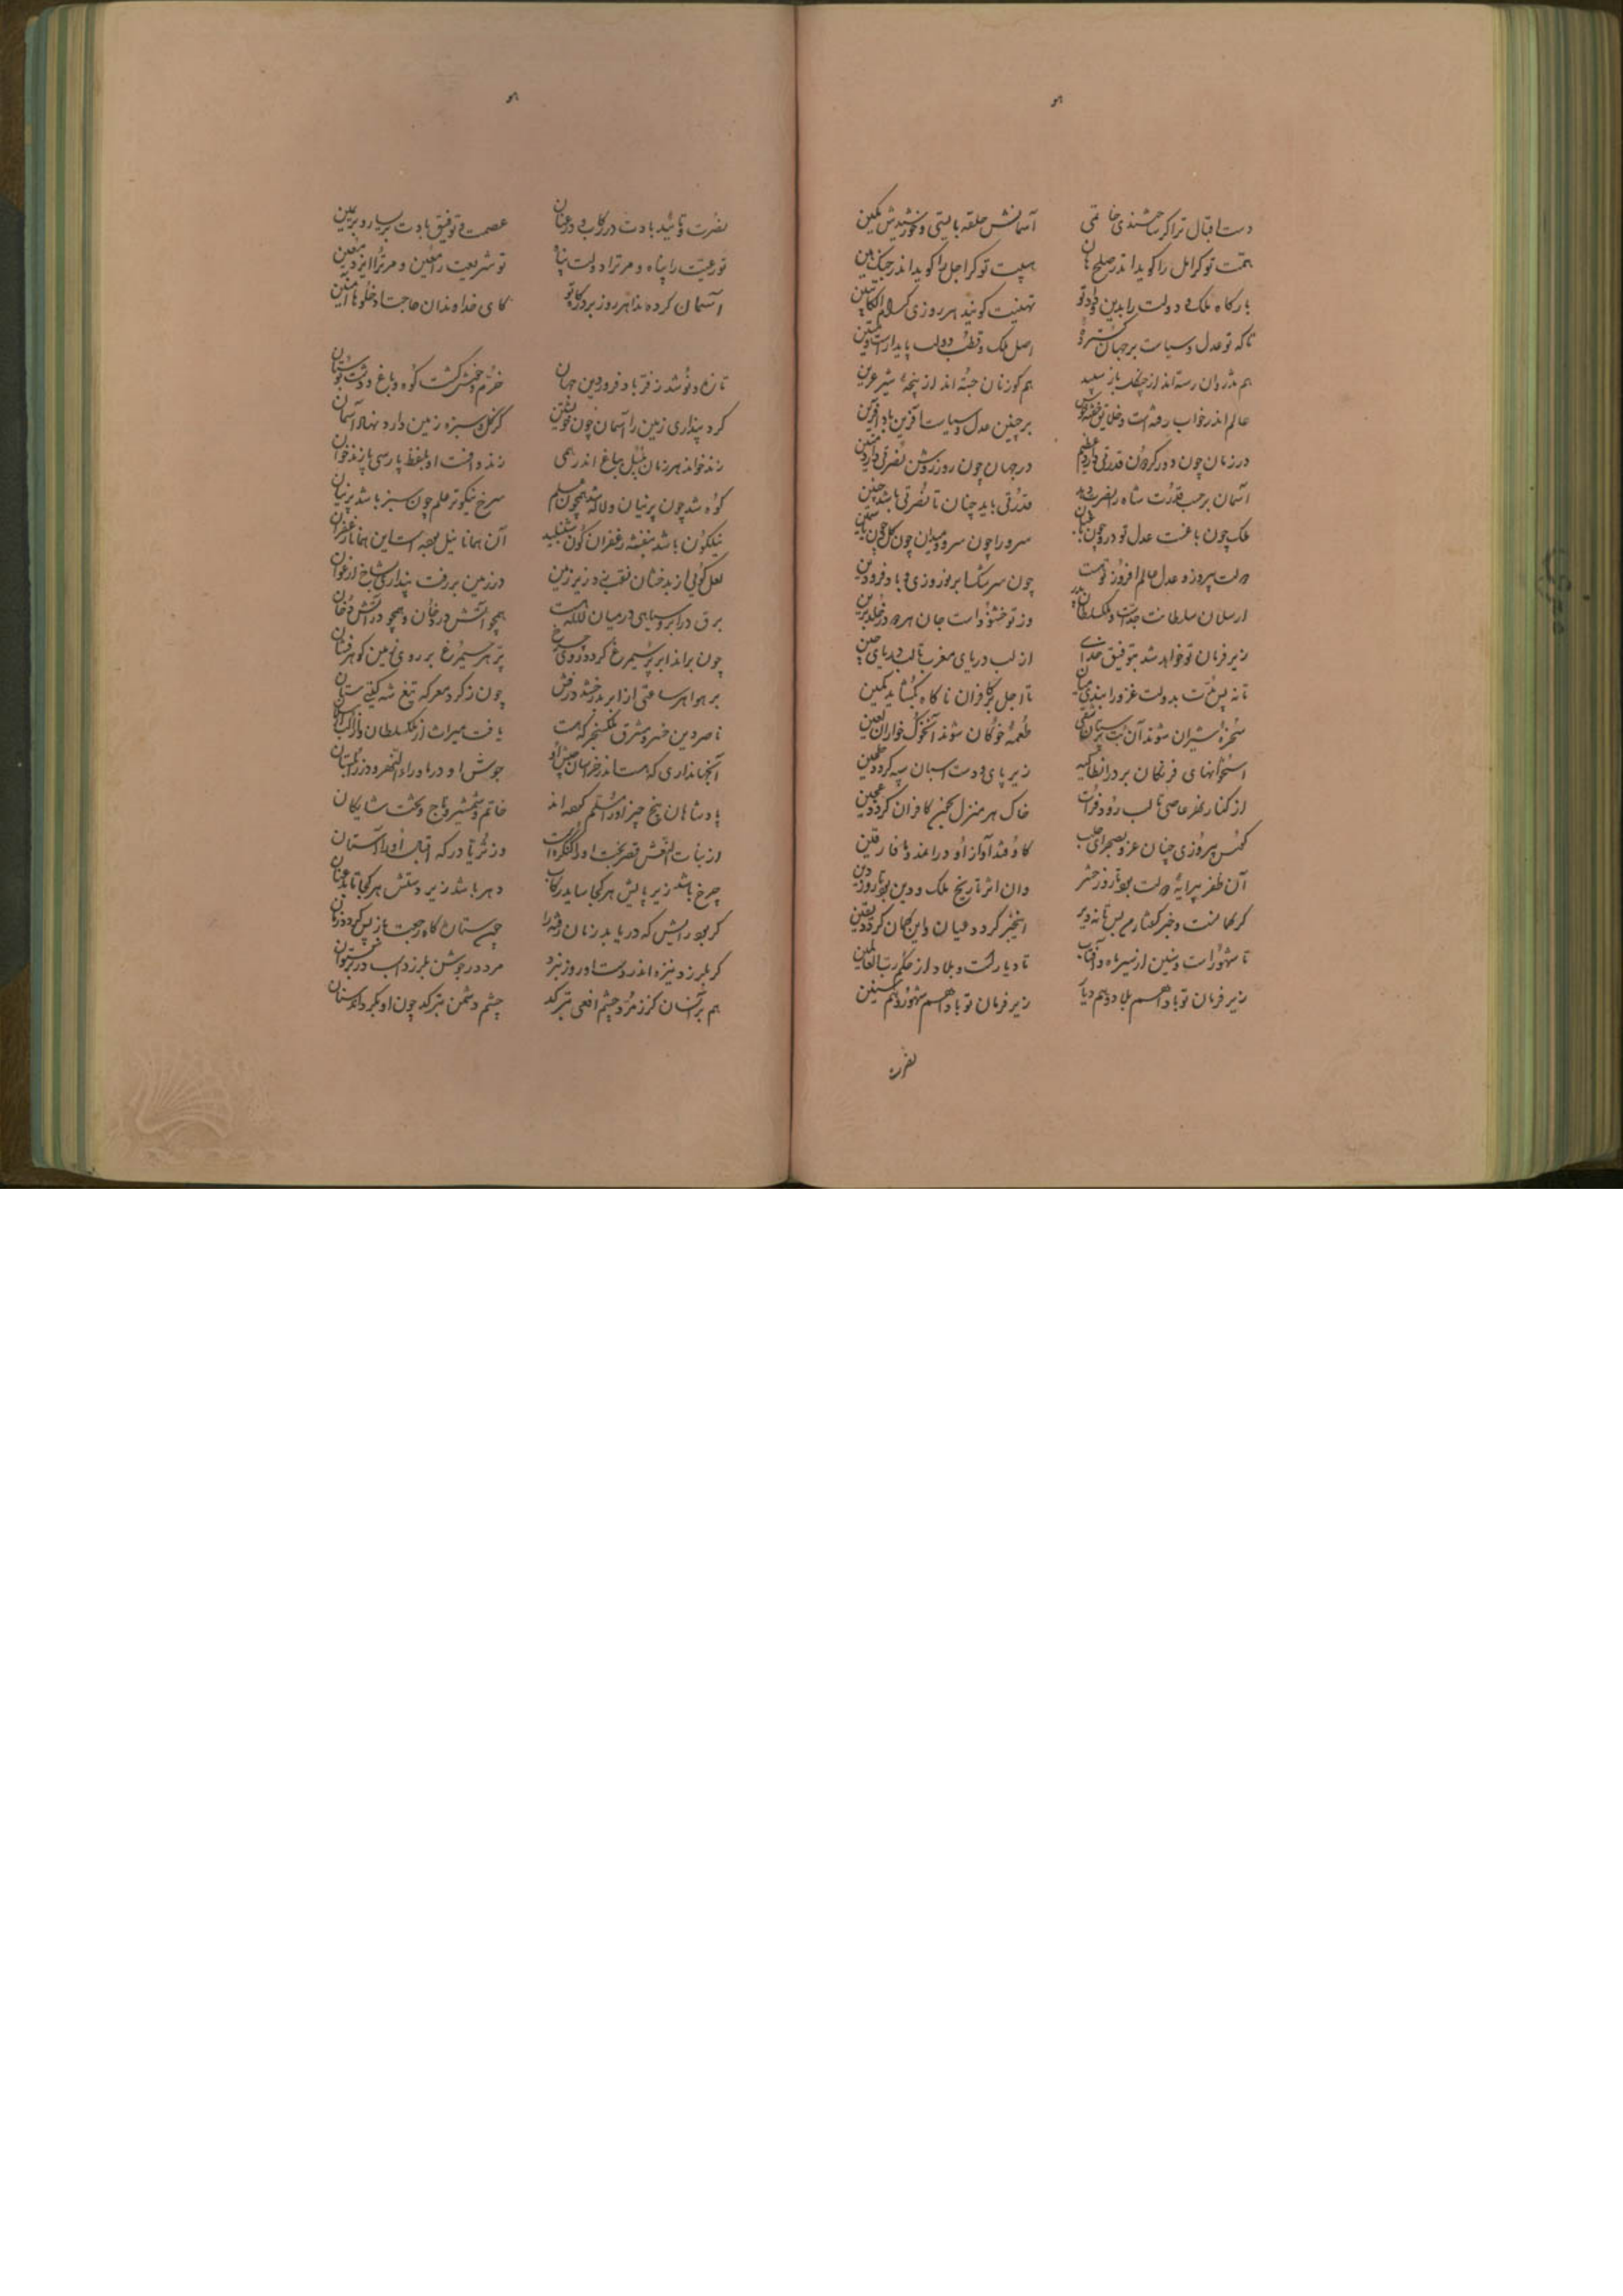 هو
دست اقبال ترا گر شایستی خاتمی آسمانش حلقه بایستی و خورشیدش نگین
همت تو گر امل را گوید اندر صلح هان هیبت تو گر اجل را گوید اندر جنگ هین
بارگاه ملک و دولت را بدین و داد تو تهنیت گویند هر روزی کرام الکاتبین
تا که تو عدل و سیاست بر جهان گسترده اصل ملک و قطب دولت پایدار است و متین
هم تذروان رسته‌اند از چنگل باز سپید هم گوزنان جسته‌اند از پنجه شیر عرین
عالم اندر خواب رفته است و خلایق خفته خوش بر چنین عدل و سیاست آفرین باد آفرین
در زمان چون دور گردون قدرتی داری عظیم در جهان چون روز روشن نصرتی داری مبین
آسمان بر حسب قدرت شاه را نصرت دهد قدرتی باید چنان تا نصرتی باشد چنین
ملک چون باغست عدل تو درو چون باغبان سرو را چون سرو میدان چون گل چون یاسمین
دولت پیروز و عدل عالم افروز تو هست چون سرشک ابر نوروزی و باد فرودین
ارسلان سلطانت جد است و ملک سلطان پدر وز تو خشنود است جان هر دو در خلد برین
زیر فرمان تو خواهد شد بتوفیق خدای از لب دریای مغرب تا لب دریای چین
تا نه بس مدت بدولت غزو را بندی میان تا اجل بر کافران ناگاه بگشاید کمین
سخره شیران شوند آن بت پرستان شقی طعمه خوکان شوند آن خوک خواران لعین
استخوانهای فرنگان بر در انطاکیه زیر پای و دست اسبان سپه گردد طحین
از کنار نهر عاصی تا لب رود فرات خاک هر منزل بخون کافران گردد عجین
کوس پیروزی چنان غرد بصحرای حلب کاوفتد آواز او در آمد و میافارقین
آن ظفر پیرایه دولت بود تا روز حشر وان اثر تاریخ ملک و دین بود تا روز دین
گر گمانست و خبر گفتار من بس تا نه دیر این خبر گردد عیان و این گمان گردد یقین
تا شهور است و سنین از سیر ماه و آفتاب تا دیار است و بلاد از حکم رب العالمین
زیر فرمان تو بادا هم بلاد و هم دیار زیر فرمان تو بادا هم شهور و هم سنین
نصرت
هو
نصرت و تأیید بادت در رکاب و در عنان عصمت و توفیق بادت بر یسار و بر یمین
تو رعیت را پناه و مر ترا دولت پناه تو شریعت را معین و مر ترا ایزد معین
آسمان کرده ندا هر روز بر درگاه تو کای خداوندان حاجت ادخلوها آمنین
تازه و نو شد ز فر باد فروردین جهان خرم و خوش گشت کوه و باغ و دشت و بوستان
کرد پنداری زمین را آسمان چون خویشتن کز گل و سبزه زمین دارد نهاد آسمان
زند خواند هر زمان بلبل بباغ اندر همی زند و افست او بلفظ پارسی پازند خوان
کوه شد چون پرنیان و لاله شد همچون علم سرخ نیکوتر علم چون سبز باشد پرنیان
نیلگون باشد بنفشه زعفران گون شنبلید آن همانا نیل بود است این همانا زعفران
لعل گویی از بدخشان نقب زد زیر زمین در زمین بر رفت پنداری بشاخ ارغوان
برق در ابر و سیاهی در میان لاله هست همچو آتش در دخان و همچو در آتش دخان
چون براند ابر پر سیمرغ گردد روی چرخ پر هر سیمرغ بر روی زمین گوهر فشان
بر هوا هر ساعتی از ابر بدرخشد درفش چون ز گرد معرکه تیغ شه گیتی ستان
ناصر دین خسرو مشرق ملک سنجر که هست یافت میراث از ملک سلطان و از الب ارسلان
آن جهانداری که هست اندر خراسان جیش او جوش او در ماوراءالنهر و در زابلستان
پادشاهان پنج چیز او را مسلم کرده‌اند خاتم و شمشیر و تاج و تخت شایگان
از بنات النعش قصر بخت او را کنگره است وز ثریا درگه اقبال او را آستان
چرخ باشد زیر پایش هر کجا ساید رکاب دهر باشد زیر دستش هر کجا تابد عنان
گر بود رایش که دریابد زمان رفته را چون ستاره گاه رجعت باز پس گردد زمان
گر بلرزد نیزه اندر دست او روز نبرد مرد در جوشن بلرزد اسب در برگستوان
هم بر آنسان کز زمرد چشم افعی بترکد چشم دشمن بترکد چون او بگرداند سنان